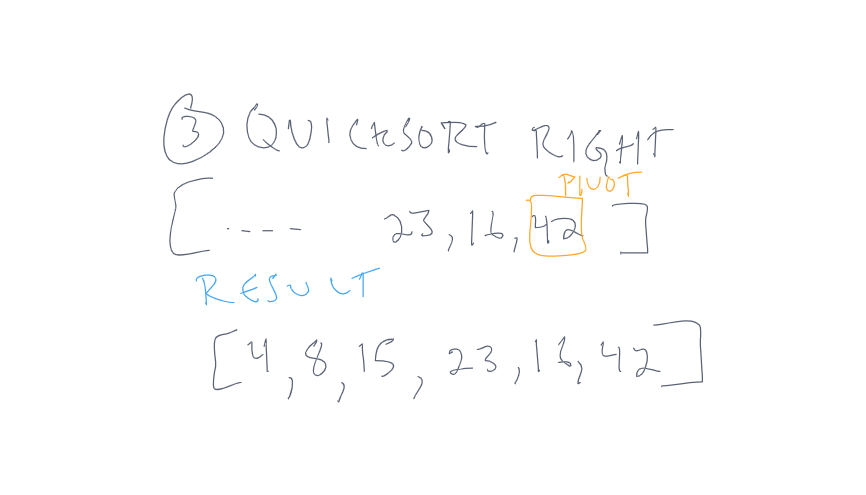 3 QUICKSORT RIGHT
PIVOT
[ ---- 23, 16, 42 ]
RESULT
[4, 8, 15, 23, 16, 42]